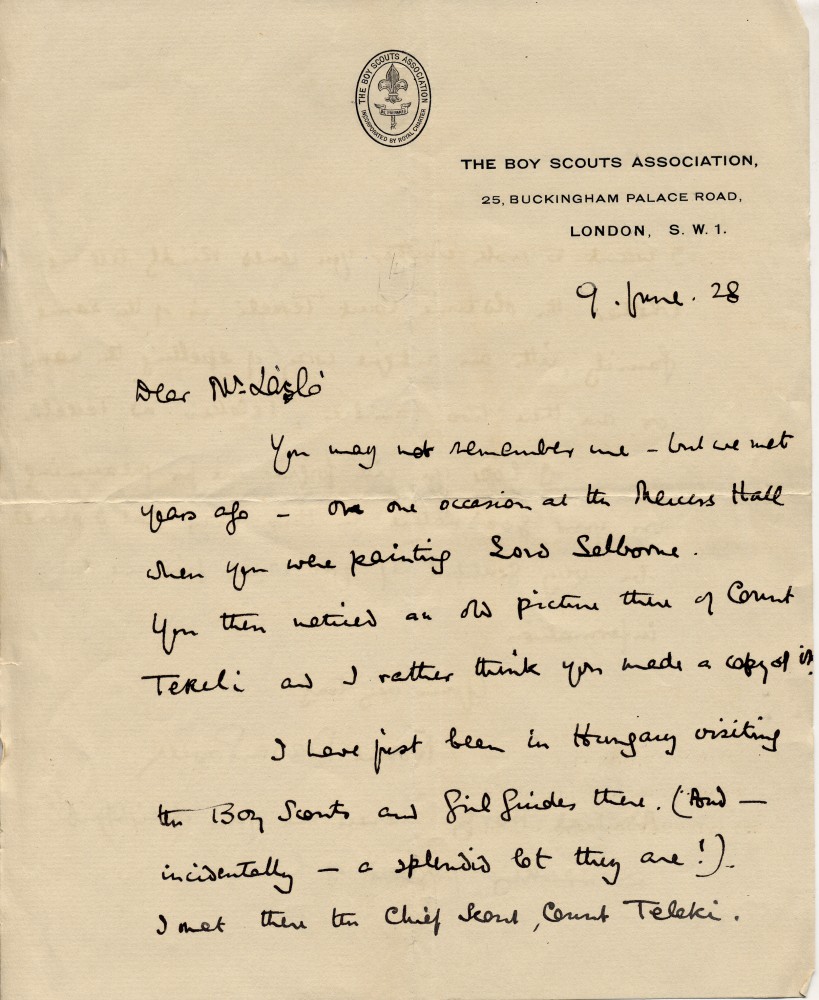 THE BOY SCOUTS ASSOCIATION
INCORPORATED BY ROYAL CHARTER
BE PREPARED
THE BOY SCOUTS ASSOCIATION,
25, BUCKINGHAM PALACE ROAD,
LONDON, S. W. 1.
9. June. 28
Dear Mr. László
You may not remember me – but we met
years ago – on one occasion at the Mercers Hall
when you were painting Lord Selborne.
You then noticed an old picture there of Count
Tekeli and I rather think you made a copy of it.
I have just been in Hungary visiting
the Boy Scouts and Girl Guides there. (And –
incidentally – a splendid lot they are!).
I met there the Chief Scout, Count Teleki.